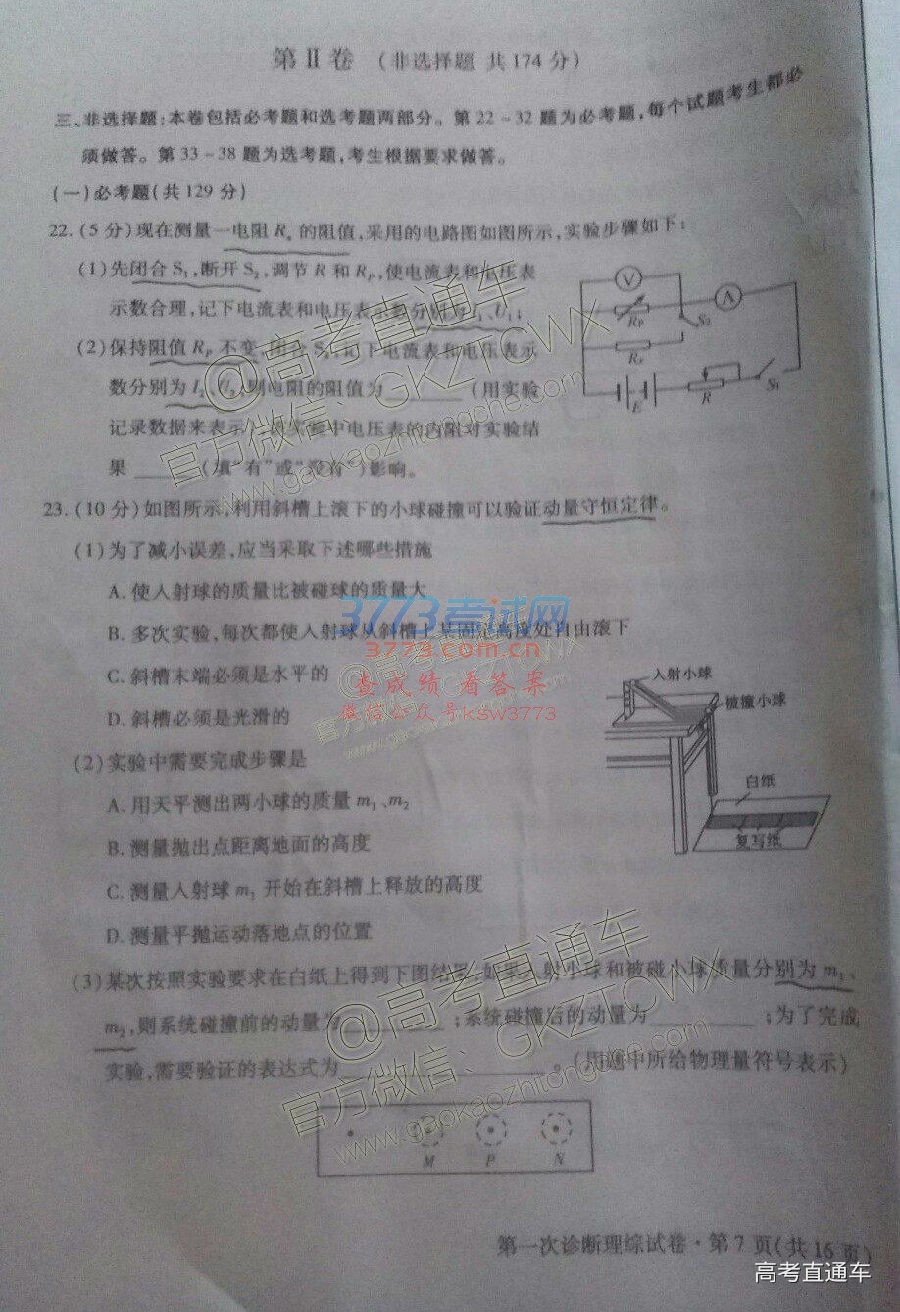 第Ⅱ卷 (非选择题 共174分)
三、非选择题:本卷包括必考题和选考题两部分。第22-32题为必考题,每个试题考生都必
须做答。第33-38题为选考题,考生根据要求做答。
(一)必考题(共129分)
22.(5分)现在测量一电阻Rx的阻值,采用的电路图如图所示,实验步骤如下:
(1)先闭合S1,断开S2,调节R和RP,使电流表和电压表
示数合理,记下电流表和电压表示数分别为I1、U1;
(2)保持阻值RP不变,闭合S2,记下电流表和电压表示
数分别为I2、U2,则电阻的阻值为________(用实验
记录数据来表示),实验中电压表的内阻对实验结
果____(填“有”或“没有”)影响。
V
A
RP
S2
Rx
E
R
S1
23.(10分)如图所示,利用斜槽上滚下的小球碰撞可以验证动量守恒定律。
(1)为了减小误差,应当采取下述哪些措施
A.使入射球的质量比被碰球的质量大
B.多次实验,每次都使入射球从斜槽上某固定高度处自由滚下
C.斜槽末端必须是水平的
D.斜槽必须是光滑的
(2)实验中需要完成步骤是
A.用天平测出两小球的质量m1、m2
B.测量抛出点距离地面的高度
C.测量入射球m1开始在斜槽上释放的高度
D.测量平抛运动落地点的位置
入射小球
被撞小球
白纸
复写纸
(3)某次按照实验要求在白纸上得到下图结果,如果入射小球和被碰小球质量分别为m1、
m2,则系统碰撞前的动量为__________;系统碰撞后的动量为__________;为了完成
实验,需要验证的表达式为____________________。(用题中所给物理量符号表示)
M P N
第一次诊断理综试卷·第7页(共15页)
@高考直通车
官方微信:GKZTCWX
www.gaokaozhitongche.com
3773考试网
3773.com.cn
查成绩 看答案
微信公众号ksw3773
@高考直通车
官方微信:GKZTCWX
www.gaokaozhitongche.com
高考直通车